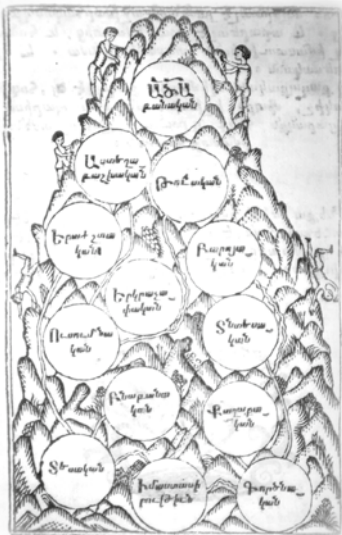 ԱԾԱ
բանական
Աստեղա
բաշխական
Թուական
Երաժշտա
կան
Բարոյա֊
կան
Երկրաչա֊
փական
Ուսումնա
կան
Տնտեսա֊
կան
Բնաբանա
կան
Քաղաքա֊
կան
Տեսական
Իմաստասի
րութիւն
Գործնա֊
կան